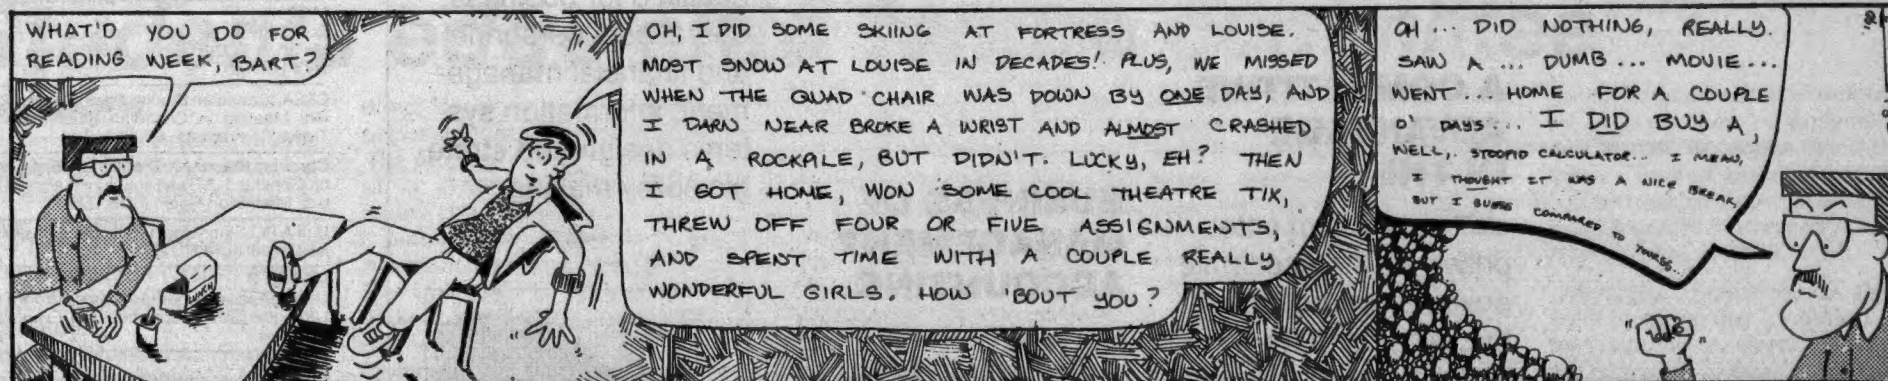 WHAT'D YOU DO FOR
READING WEEK, BART?
OH, I DID SOME SKIING AT FORTRESS AND LOUISE.
MOST SNOW AT LOUISE IN DECADES! PLUS, WE MISSED
WHEN THE QUAD CHAIR WAS DOWN BY ONE DAY, AND
I DARN NEAR BROKE A WRIST AND ALMOST CRASHED
IN A ROCKPILE, BUT DIDN'T. LUCKY, EH? THEN
I GOT HOME, WON SOME COOL THEATRE TIX,
THREW OFF FOUR OR FIVE ASSIGNMENTS,
AND SPENT TIME WITH A COUPLE REALLY
WONDERFUL GIRLS. HOW 'BOUT YOU?
OH ... DID NOTHING, REALLY.
SAW A ... DUMB ... MOVIE ...
WENT ... HOME FOR A COUPLE
O' DAYS ... I DID BUY A,
WELL, STOOPID CALCULATOR... I MEAN,
I THOUGHT IT WAS A NICE BREAK,
BUT I GUESS COMPARED TO YOURS...